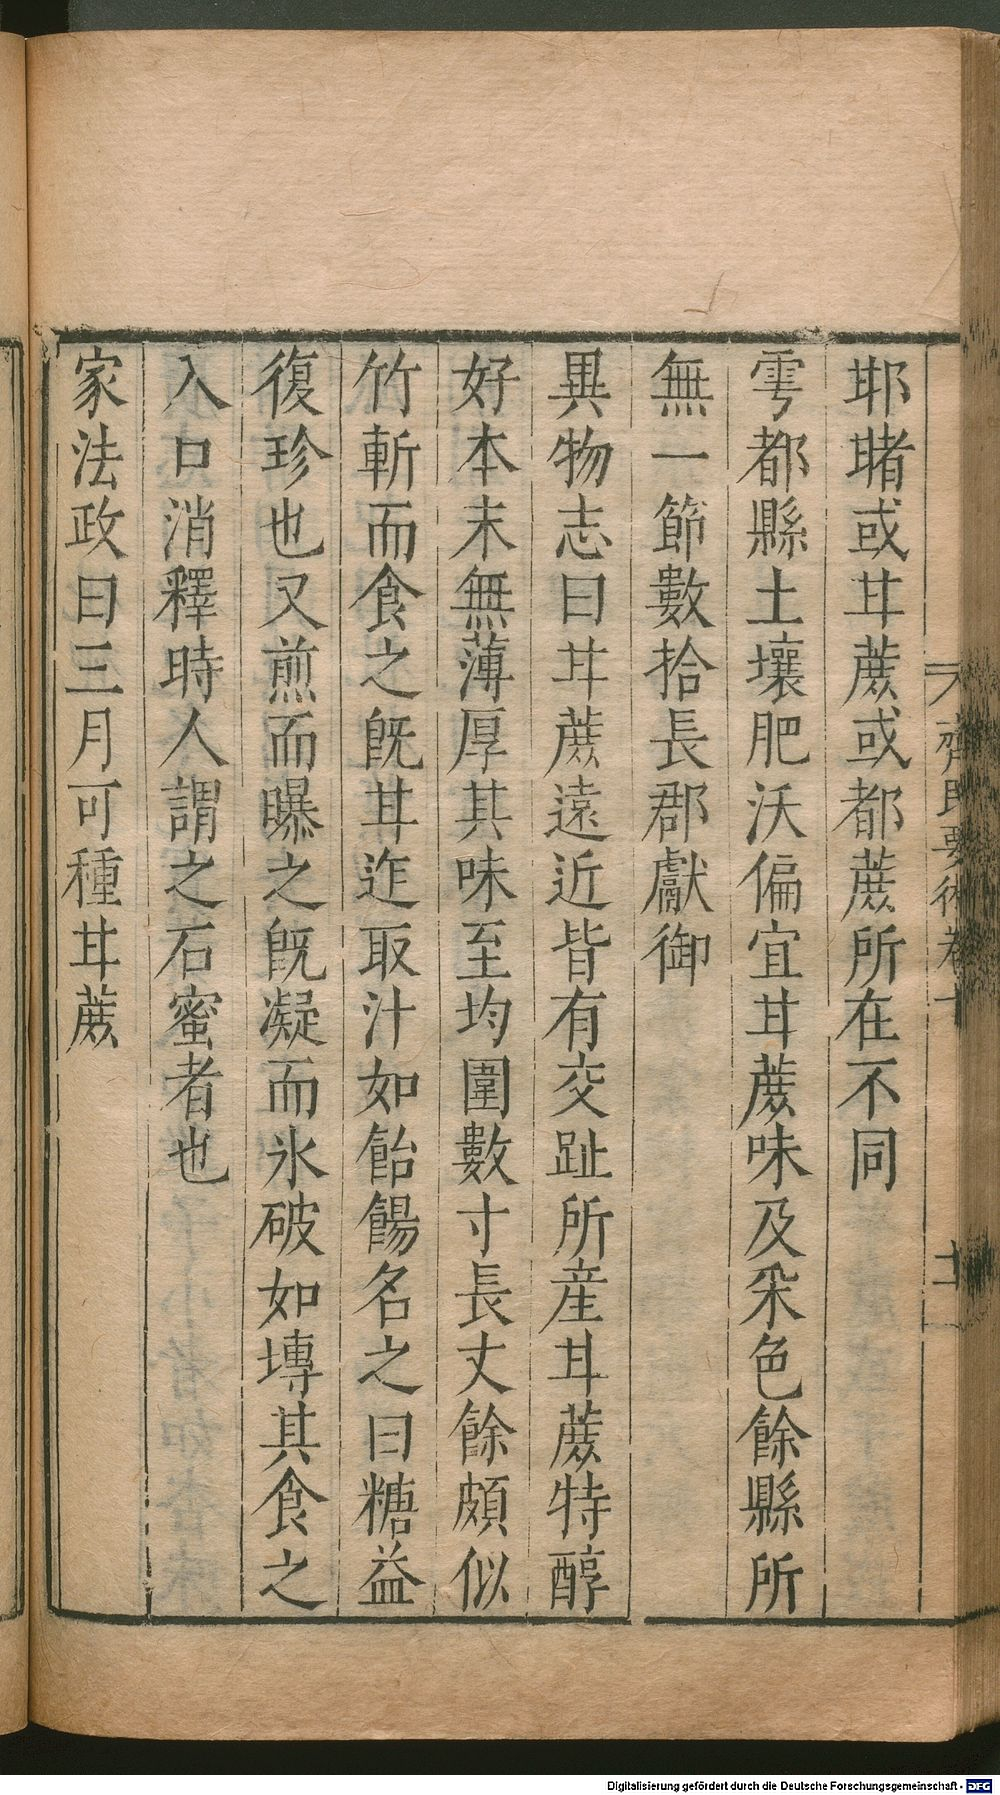 齊民要術卷十
十一
耶䐗或甘蔗或都蔗所在不同
雩都縣土壤肥沃偏宜甘蔗味及采色餘縣所
無一節數拾長郡獻御
異物志曰甘蔗遠近皆有交趾所産甘蔗特醇
好本末無薄厚其味至均圍數寸長丈餘頗似
竹斬而食之旣甘迮取汁如飴餳名之曰糖益
復珍也又煎而曝之旣凝而氷破如塼其食之
入口消釋時人謂之石蜜者也
家法政曰三月可種甘蔗
Digitalisierung gefördert durch die Deutsche Forschungsgemeinschaft - DFG